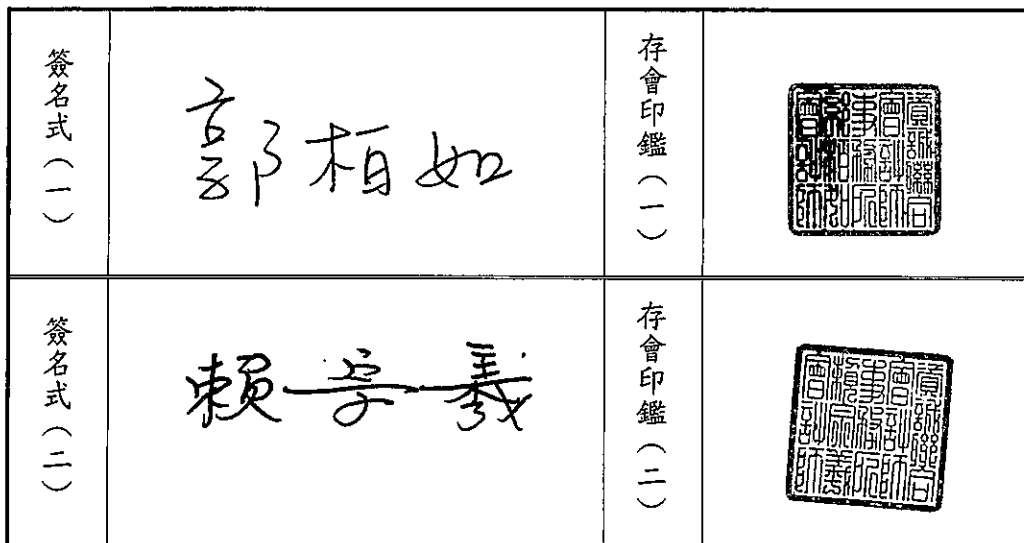 簽名式（一）
郭柏如
存會印鑑（一）
資誠聯合
會計師
事務所
郭柏如
會計師
簽名式（二）
賴宗羲
存會印鑑（二）
資誠聯合
會計師
事務所
賴宗羲
會計師